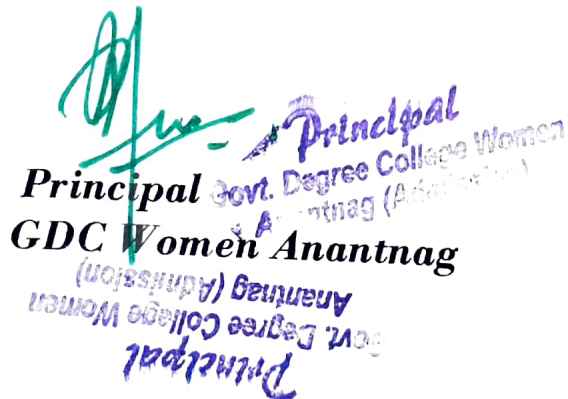 Principal
Govt. Degree College Women
Anantnag (Admission)
Principal
GDC Women Anantnag
Principal
Govt. Degree College Women
Anantnag (Admission)